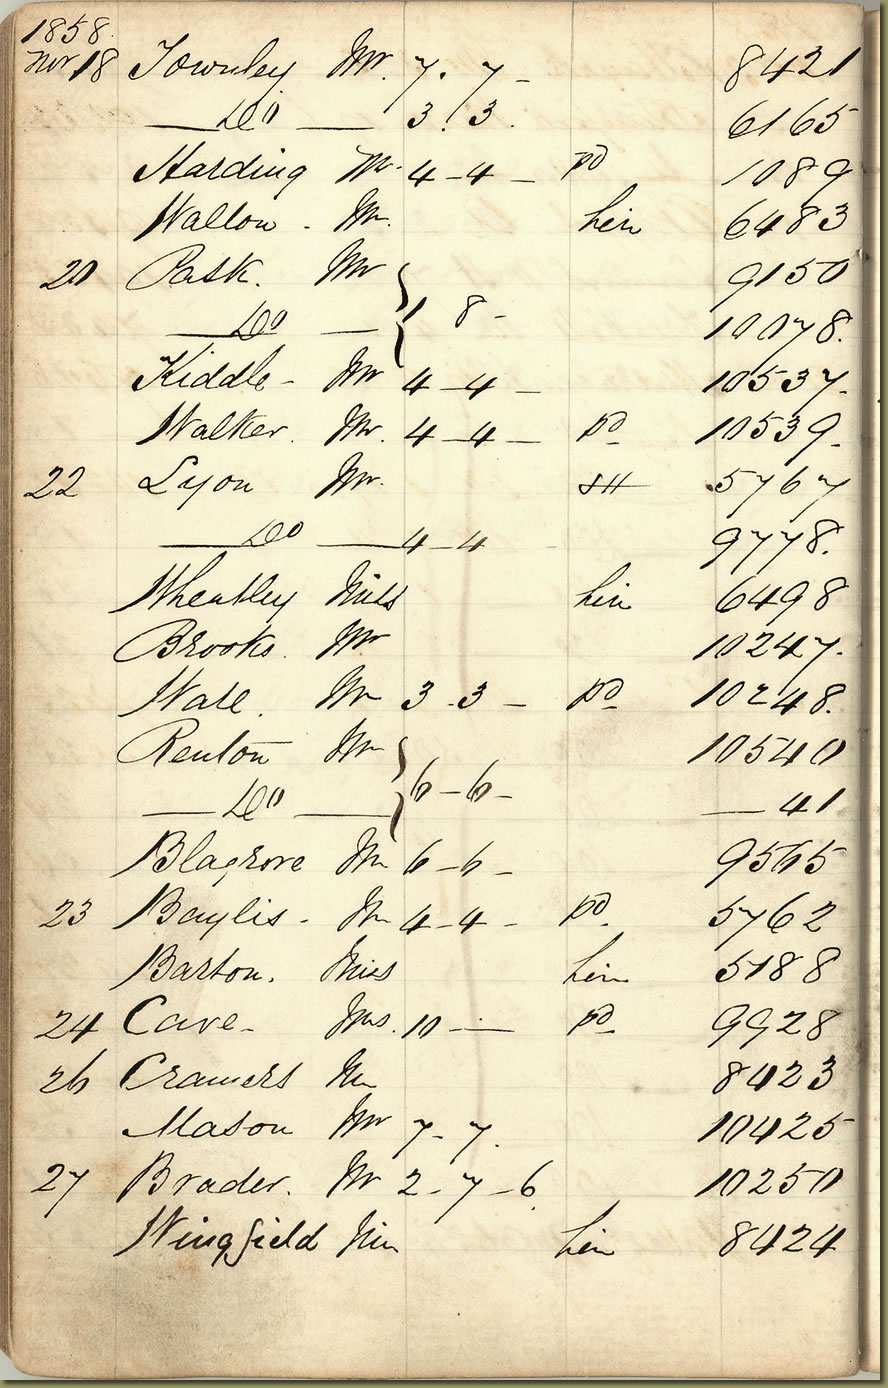 1858.
Nov 18 Townley Mr. 7. 7 - 8421
— Do — 3. 3. 6165
Harding Mr. 4 - 4 - pd 1089
Walton . Mr. hire 6483
20 Pask. Mr 9150
— Do — } 1 8 - 10078.
Kiddle - Mr 4 - 4 - 10537.
Walker. Mr. 4 - 4 - pd 10539.
22 Lyon Mr. SH 5767
— Do — 4 - 4 - 9778.
Wheatley Miss hire 6498
Brooks. Mr 10247.
Wall. Mr 3 . 3 - pd 10248.
Renton Mr 10540
— Do — } 6 - 6 - — 41
Blagrove Mr 6 - 6 - 9565
23 Baylis - Mr 4 - 4 - pd. 5762
Barton. Miss hire 5188
24 Cave - Mrs. 10 - — pd 9928
26 Cramers Mr 8423
Mason Mr 7 - 7. 10425
27 Brader. Mr 2 - 7 - 6 10250
Wingfield hire 8424